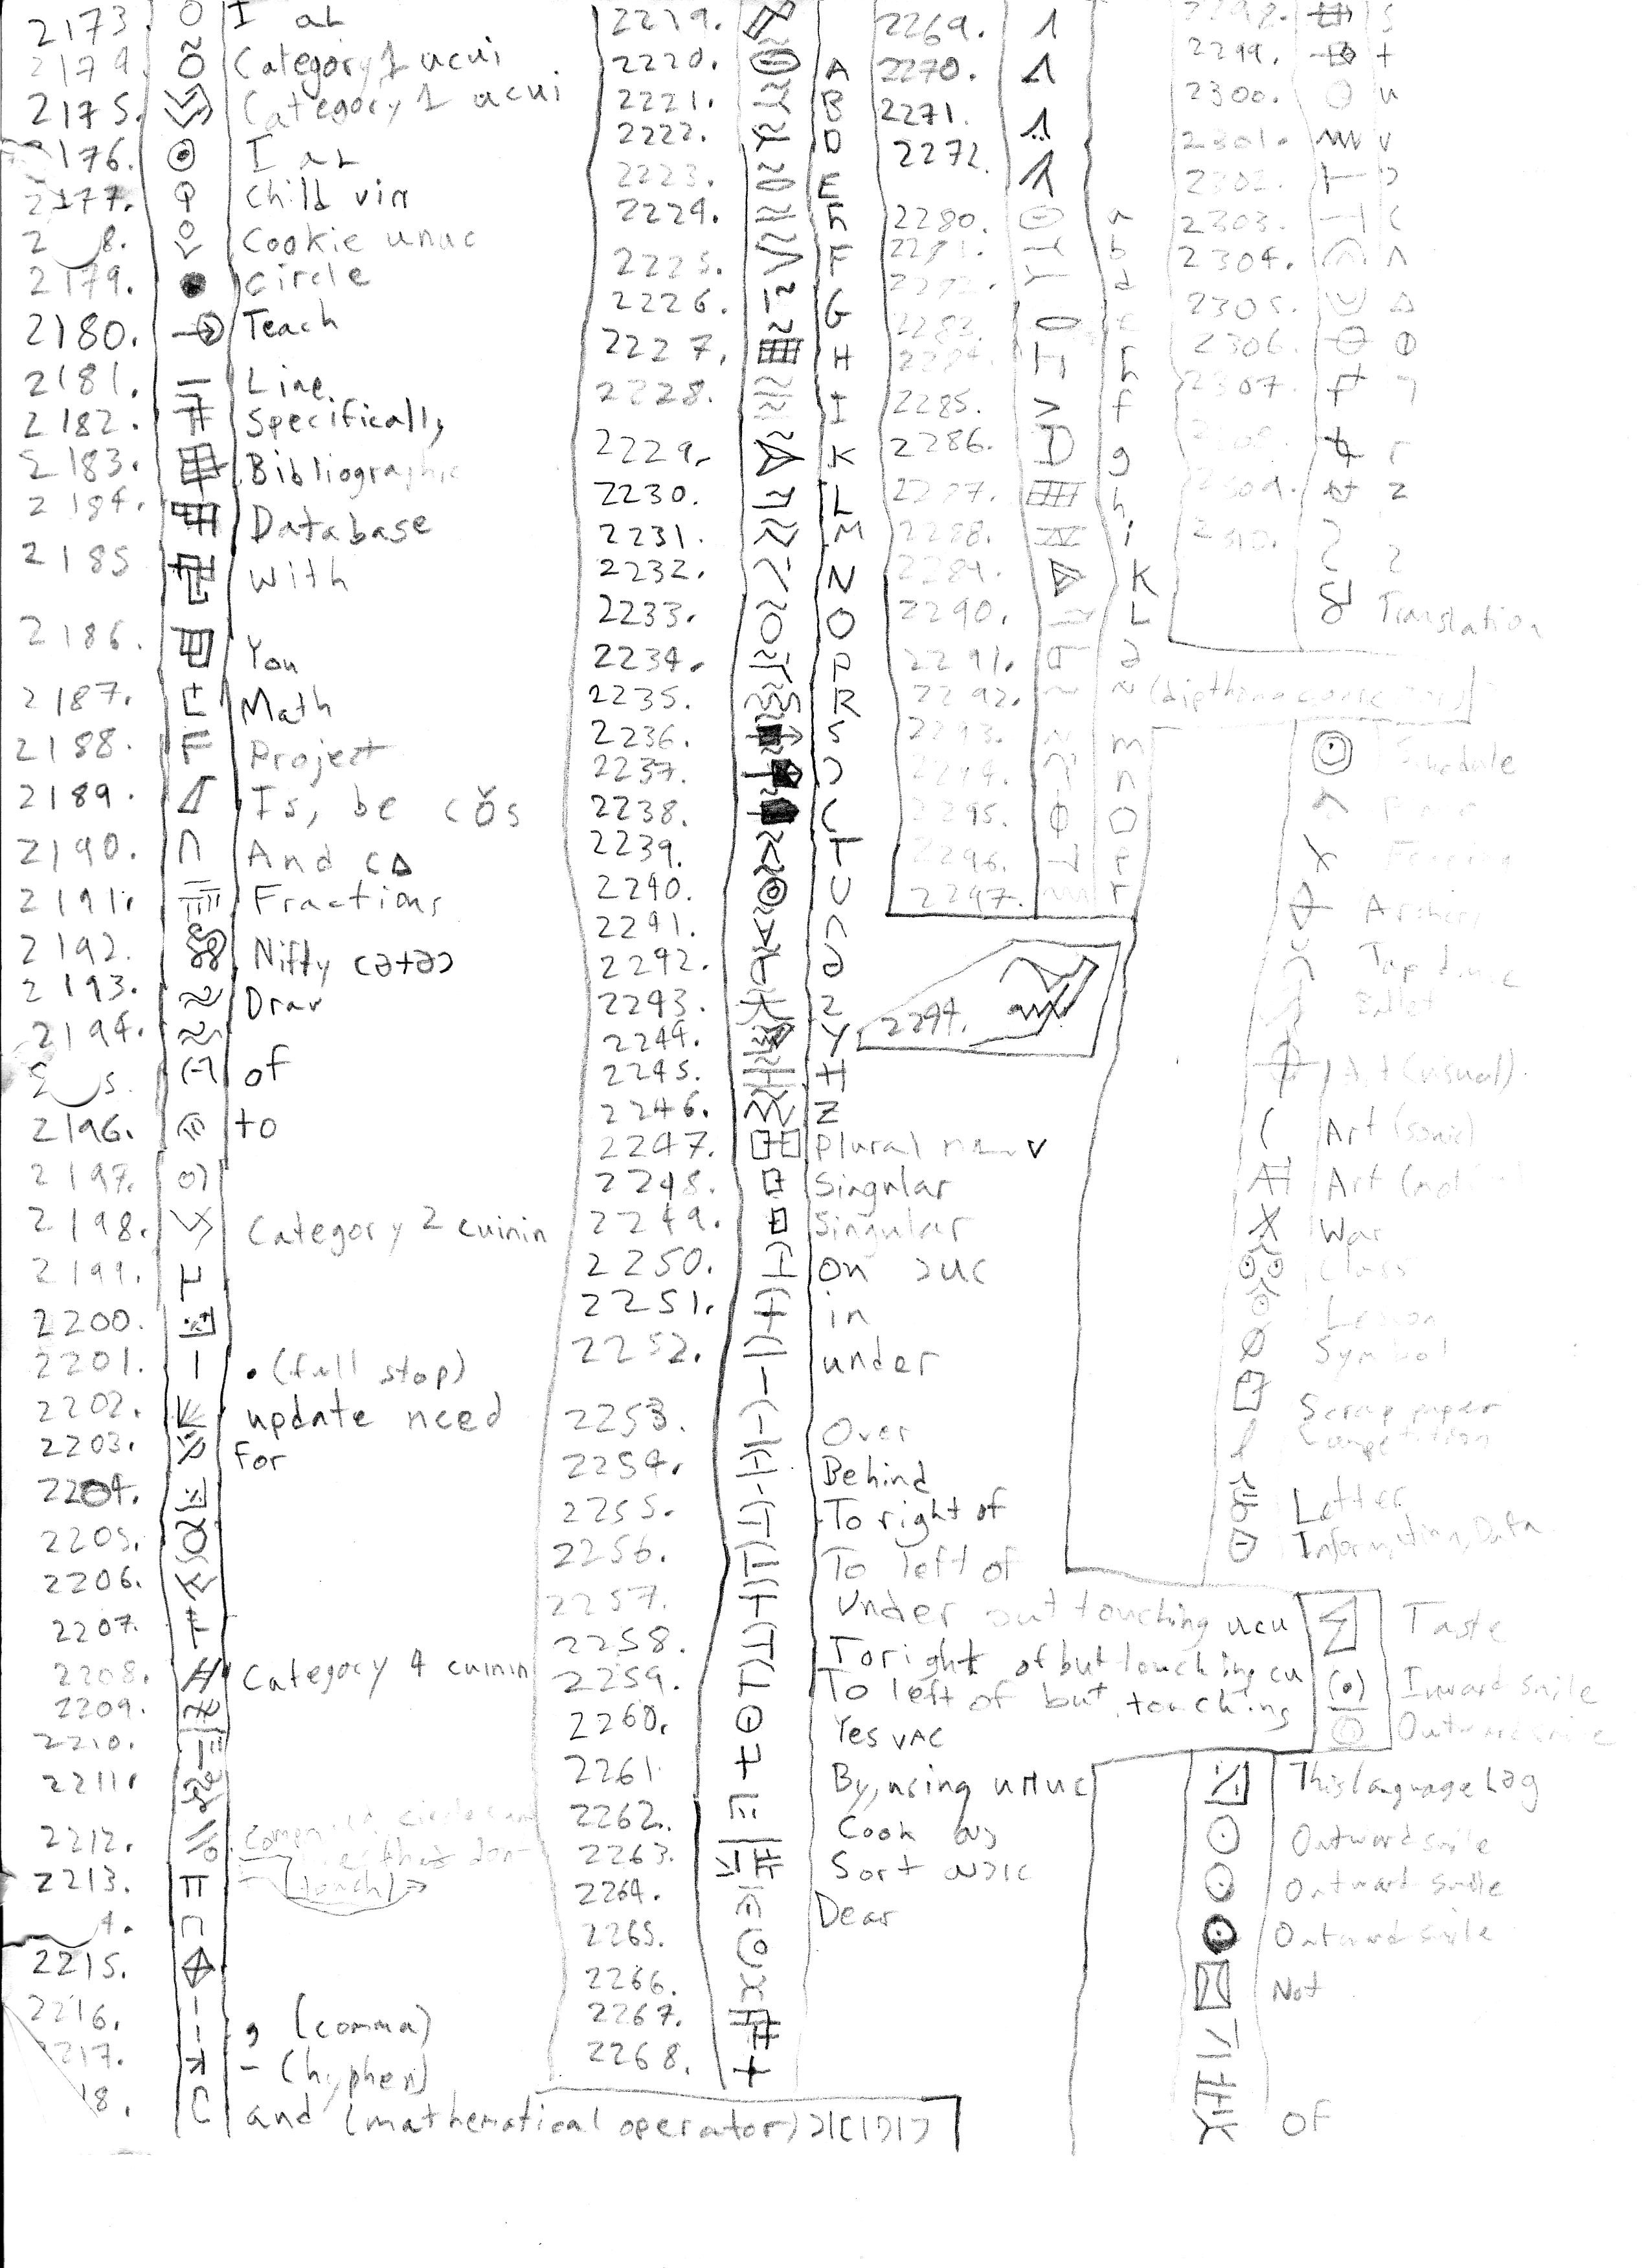 2173. I aL
2174. Category 1 ucui
2175. Category 1 ucui
176. I aL
2177. Child vin
2 8. Cookie unac
2179. Circle
2180. Teach
2181. Line
2182. Specifically
2183. Bibliographic
2184. Database
2185 with
2186. You
2187. Math
2188. Project
2189. Is, be cŏs
2190. And c∆
2191. Fractions
2192. Nifty cə+əɔ
2193. Draw
2194.
s. of
2196. to
2197.
2198. Category 2 cuinin
2199.
2200.
2201. • (full stop)
2202. update need
2203. For
2204.
2205.
2206.
2207.
2208. Category 4 cuinin
2209.
2210.
2211.
2212.
2213.
4.
2215.
2216. , (comma)
217. - (hyphen)
18. and (mathematical operator)
2219.
2220. A
2221. B
2222. D
2223. E
2224. h
2225. F
2226. G
2227. H
2228. I
2229. K
2230. L
2231. M
2232. N
2233. O
2234. P
2235. R
2236. S
2237. Ɔ
2238. C
2239. T
2240. U
2241. ∩
2242. ∂
2243. 2
2244. Y
2245.
2246. Z
2247. Plural
2248. Singular
2249. Singular
2250. On ɔuc
2251. in
2252. under
2253. Over
2254. Behind
2255. To right of
2256. To left of
2257. Under but touching ucu
2258. To right of but touching cu
2259. To left of but touching
2260. Yes vAC
2261. By, using
2262. Cook
2263. Sort
2264. Dear
2265.
2266.
2267.
2268.
2269.
2270.
2271.
2272.
2280. a
2281. b
2282. d
2283. e
2284. h
2285. f
2286. g
2287. h
2288. i
2289. K
2290. L
2291. ∂
2292. ~
2293. m
2294. n
2295. O
2296. p
2297. r
2244.
2298. s
2299. t
2300. u
2301. v
2302. ɔ
2303. c
2304. ∧
2305. ∆
2306.
2307.
2308. r
2309. z
2310. 2
Translation
Schedule
Fencing
Archery
Tap dance
Ballet
Art (visual)
Art (sonic)
Art
War
Class
Lesson
Symbol
Scrap paper
Competition
Letter
Information, Data
Taste
Inward smile
Outward smile
This languageLəg
Outward smile
Outward smile
Outward smile
Not
OF